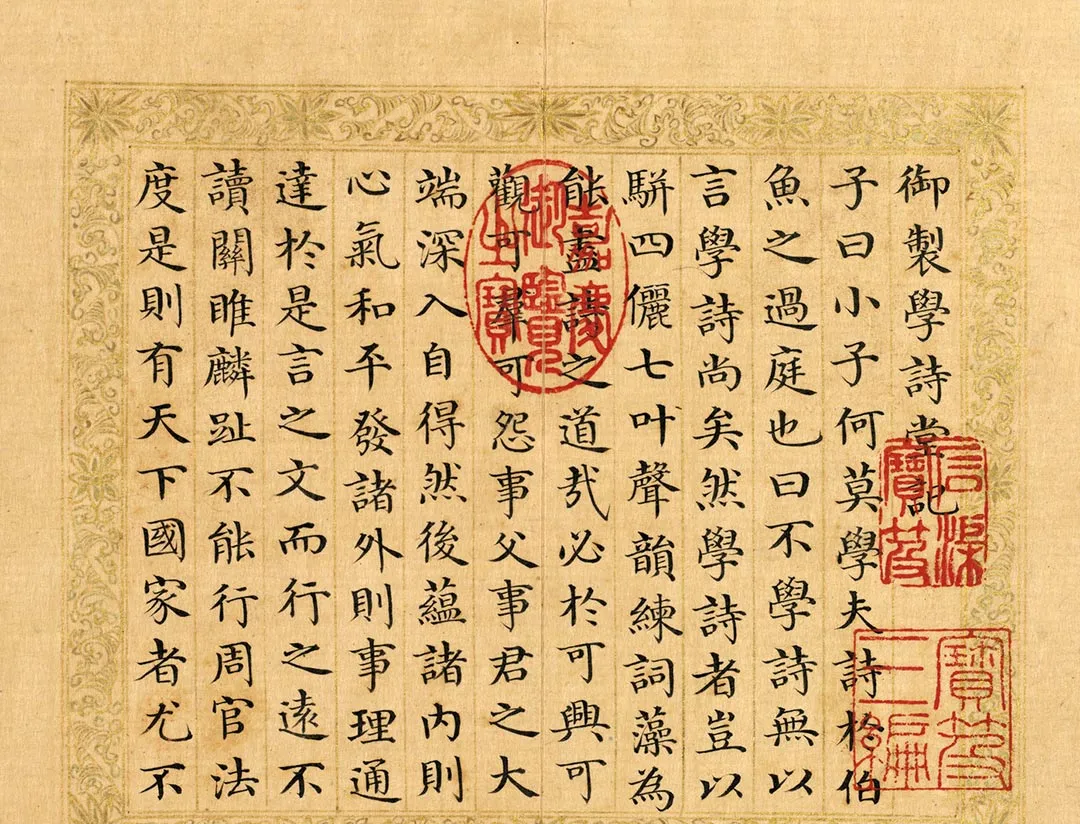 御製學詩堂記
子曰小子何莫學夫詩於伯
魚之過庭也曰不學詩無以
言學詩尚矣然學詩者豈以
駢四儷七叶聲韻練詞藻為
能盡詩之道哉必於可興可
觀可羣可怨事父事君之大
端深入自得然後蘊諸內則
心氣和平發諸外則事理通
達於是言之文而行之遠不
讀關雎麟趾不能行周官法
度是則有天下國家者尤不
嘉慶御覽之寶
石渠寶笈
寶笈三編